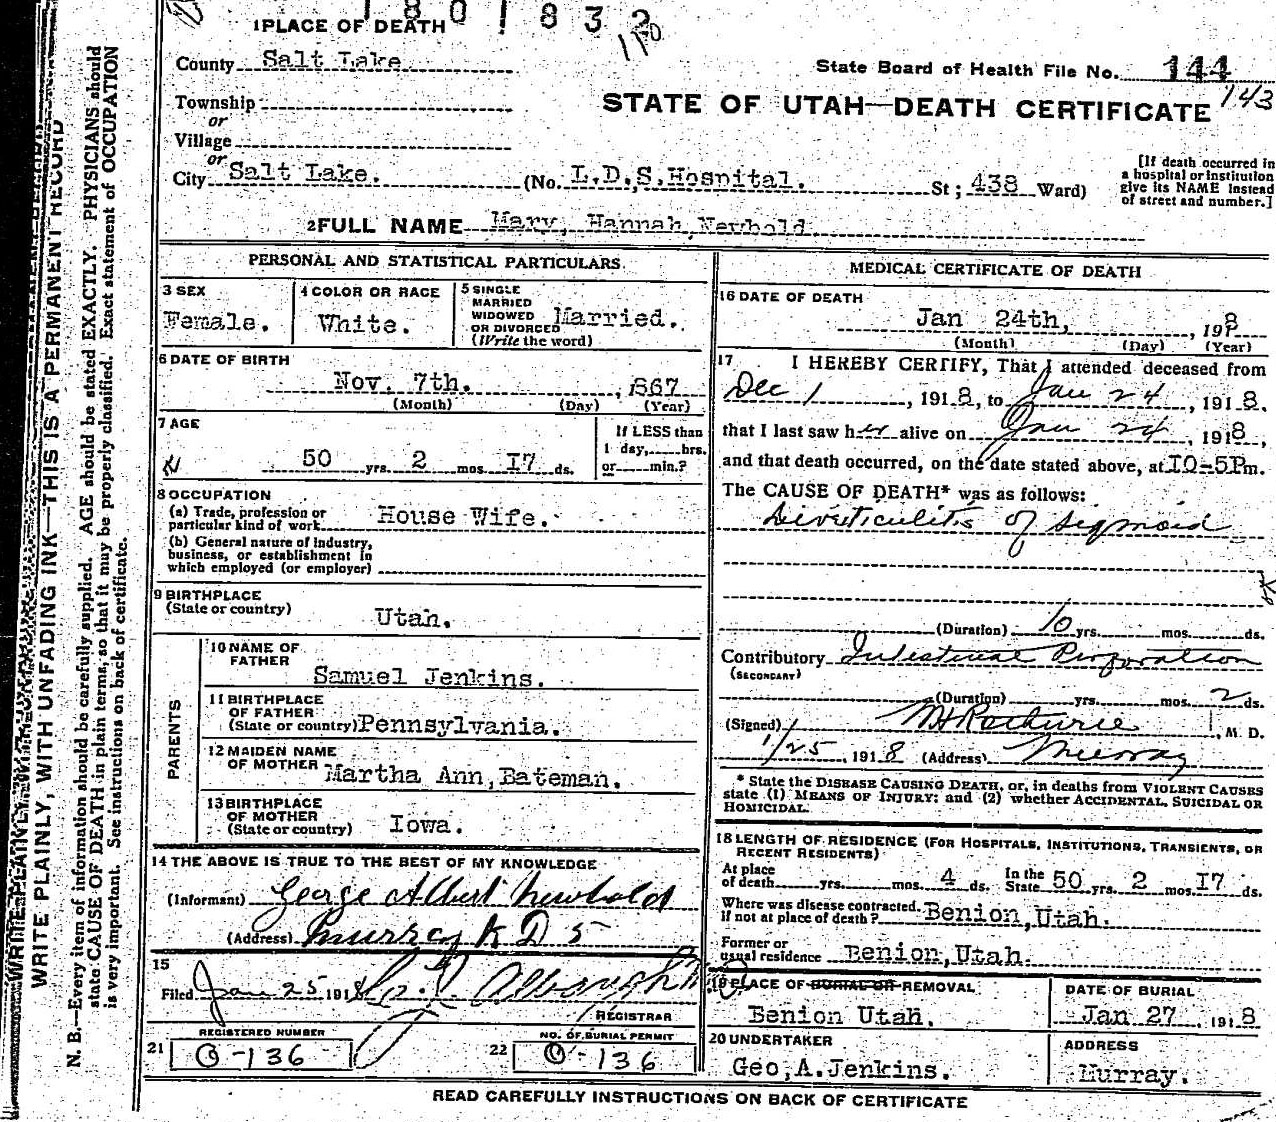 1801832
170
1 PLACE OF DEATH
County Salt Lake
State Board of Health File No. 144
143
Township
or
Village
or
City Salt Lake.
STATE OF UTAH—DEATH CERTIFICATE
(No. L.D.S. Hospital. St; 438 Ward)
[If death occurred in
a hospital or institution
give its NAME instead
of street and number.]
2 FULL NAME Mary, Hannah Newbold.
PERSONAL AND STATISTICAL PARTICULARS
3 SEX
Female.
4 COLOR OR RACE
White.
5 SINGLE
MARRIED
WIDOWED
OR DIVORCED
(Write the word)
Married.
6 DATE OF BIRTH
Nov. 7th. , 1867
(Month) (Day) (Year)
7 AGE
50 yrs. 2 mos. 17 ds.
If LESS than
1 day, hrs.
or min.?
8 OCCUPATION
(a) Trade, profession or
particular kind of work House Wife.
(b) General nature of industry,
business, or establishment in
which employed (or employer)
9 BIRTHPLACE
(State or country)
Utah.
PARENTS
10 NAME OF
FATHER
Samuel Jenkins.
11 BIRTHPLACE
OF FATHER
(State or country) Pennsylvania.
12 MAIDEN NAME
OF MOTHER Martha Ann, Bateman.
13 BIRTHPLACE
OF MOTHER
(State or country) Iowa.
14 THE ABOVE IS TRUE TO THE BEST OF MY KNOWLEDGE
(Informant) George Albert Newbold
(Address) Murray R D 5
15
Filed Jan 25 1918
REGISTRAR
REGISTERED NUMBER
21 O-136
NO. OF BURIAL PERMIT
22 O-136
MEDICAL CERTIFICATE OF DEATH
16 DATE OF DEATH
Jan 24th, , 1918
(Month) (Day) (Year)
17 I HEREBY CERTIFY, That I attended deceased from
Dec 1 , 1918, to Jan 24 , 1918.
that I last saw her alive on Jan 24 , 1918,
and that death occurred, on the date stated above, at 10-5Pm.
The CAUSE OF DEATH* was as follows:
Diverticulitis of Sigmoid
(Duration) 10 yrs. mos. ds.
Contributory Intestinal Perforation
(SECONDARY)
(Duration) yrs. mos. 2 ds.
(Signed) , M. D.
1/25 , 1918 (Address) Murray
* State the DISEASE CAUSING DEATH, or, in deaths from VIOLENT CAUSES
state (1) MEANS OF INJURY; and (2) whether ACCIDENTAL, SUICIDAL OR
HOMICIDAL.
18 LENGTH OF RESIDENCE (FOR HOSPITALS, INSTITUTIONS, TRANSIENTS, OR
RECENT RESIDENTS)
At place
of death yrs. mos. 4 ds. In the
State 50 yrs. 2 mos. 17 ds.
Where was disease contracted,
if not at place of death? Benion, Utah.
Former or
usual residence Benion, Utah.
19 PLACE OF BURIAL OR REMOVAL
Benion Utah.
DATE OF BURIAL
Jan 27 , 1918
20 UNDERTAKER
Geo, A. Jenkins.
ADDRESS
Murray.
READ CAREFULLY INSTRUCTIONS ON BACK OF CERTIFICATE
WRITE PLAINLY, WITH UNFADING INK—THIS IS A PERMANENT RECORD
N. B.—Every item of information should be carefully supplied. AGE should be stated EXACTLY. PHYSICIANS should
state CAUSE OF DEATH in plain terms, so that it may be properly classified. Exact statement of OCCUPATION
is very important. See instructions on back of certificate.